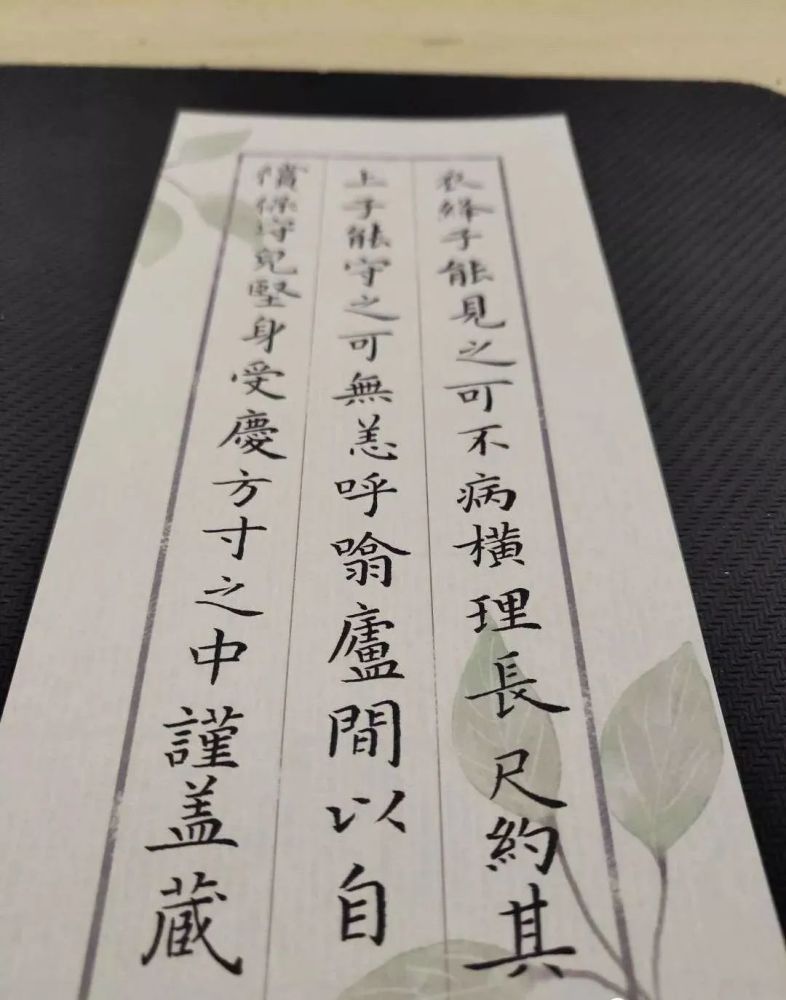 衣絳子能見之可不病橫理長尺約其
上子能守之可無恙呼噏廬間以自
償保守兒堅身受慶方寸之中謹盖蔵